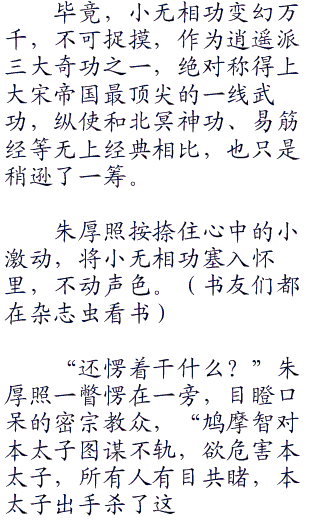 毕竟，小无相功变幻万
千，不可捉摸，作为逍遥派
三大奇功之一，绝对称得上
大宋帝国最顶尖的一线武
功，纵使和北冥神功、易筋
经等无上经典相比，也只是
稍逊了一筹。
朱厚照按捺住心中的小
激动，将小无相功塞入怀
里，不动声色。（书友们都
在杂志虫看书）
“还愣着干什么？”朱
厚照一瞥愣在一旁，目瞪口
呆的密宗教众，“鸠摩智对
本太子图谋不轨，欲危害本
太子，所有人有目共睹，本
太子出手杀了这